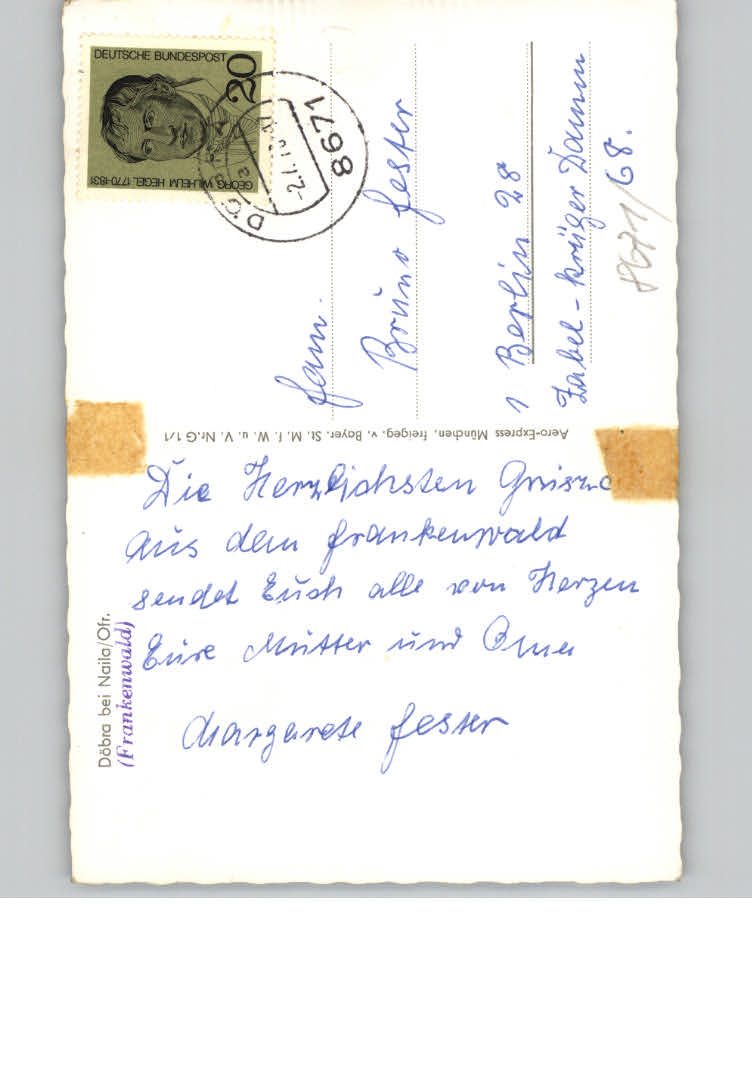 Die Herzlichsten Grüsse
aus dem Frankenwald
sendet Euch alle von Herzen
Eure Mutter und Oma
Margarete Fester
Döbra bei Naila/Ofr.
(Frankenwald)
Aero-Express München, freigeg. v. Bayer. St. M. f. W. u. V. Nr.G 1/1
DEUTSCHE BUNDESPOST
20
GEORG WILHELM HEGEL 1770-1831
8671
Fam.
Bruno Fester
1 Berlin 28
Zabel-Krüger Damm
68.
8671/